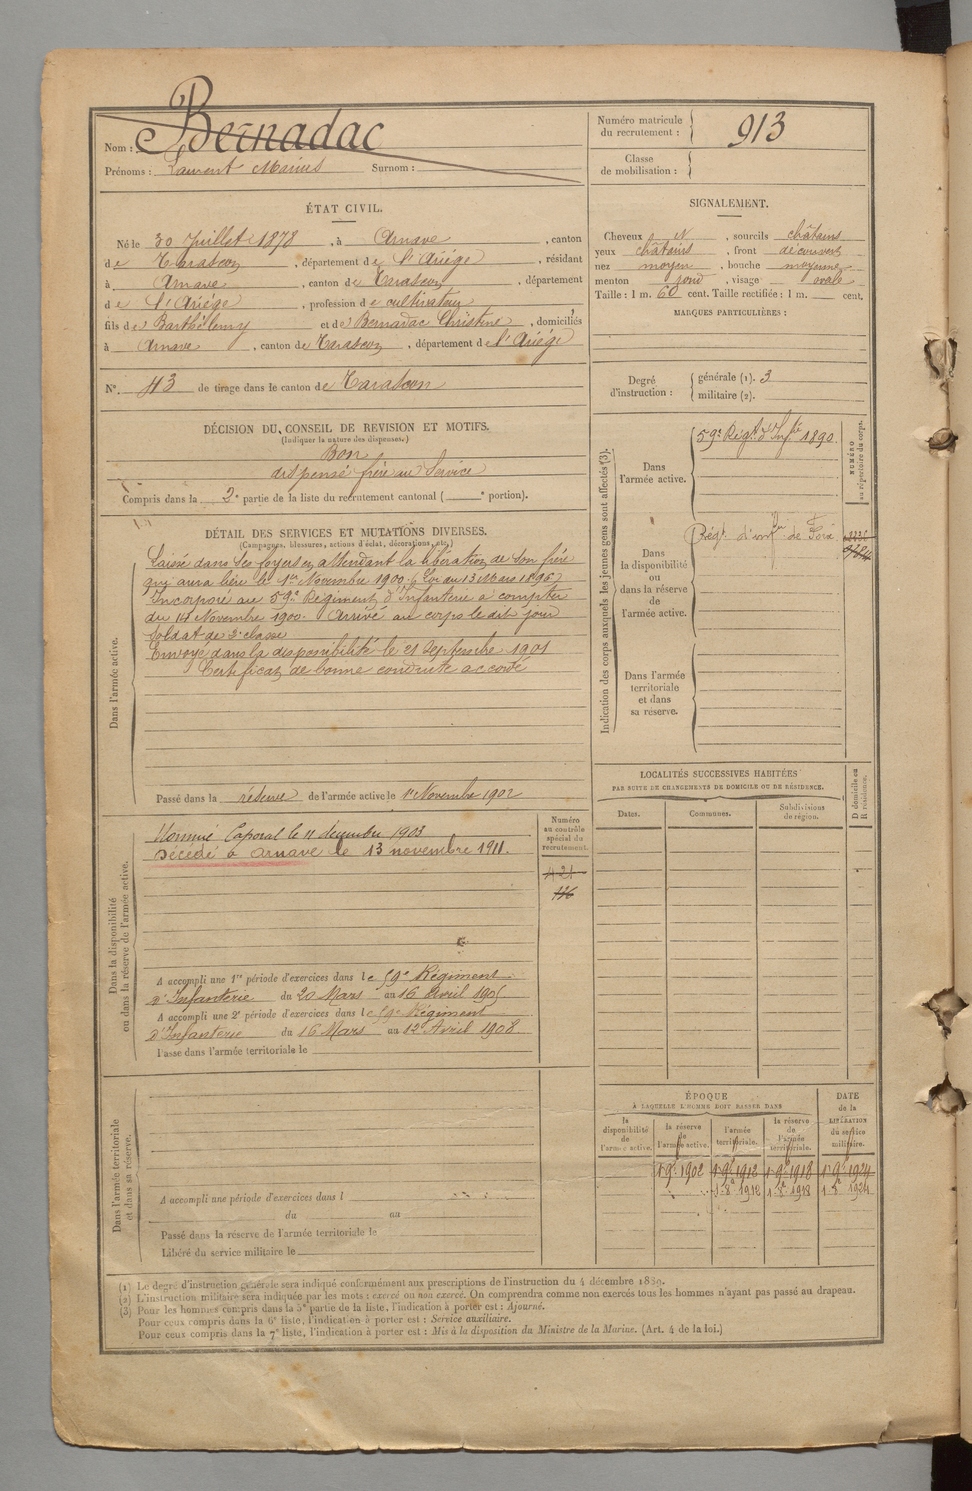 Nom : Bernadac
Prénoms : Laurent Marius Surnom :
Numéro matricule du recrutement : 913
Classe de mobilisation :
ÉTAT CIVIL.
Né le 30 Juillet 1878, à Arnave, canton
de Tarascon, département de l'Ariége, résidant
à Arnave, canton de Tarascon, département
de l'Ariége, profession de cultivateur
fils de Barthélemy et de Bernadac Christine, domiciliés
à Arnave, canton de Tarascon, département de l'Ariége
N° 43 de tirage dans le canton de Tarascon
SIGNALEMENT.
Cheveux N, sourcils châtains
yeux châtains, front découvert
nez moyen, bouche moyenne
menton rond, visage ovale
Taille : 1 m. 60 cent. Taille rectifiée : 1 m. cent.
MARQUES PARTICULIÈRES :
Degré d'instruction : générale (1). 3
militaire (2).
DÉCISION DU CONSEIL DE REVISION ET MOTIFS.
(Indiquer la nature des dispenses.)
Bon
dispensé frère au Service
Compris dans la 2e partie de la liste du recrutement cantonal ( e portion).
DÉTAIL DES SERVICES ET MUTATIONS DIVERSES.
(Campagnes, blessures, actions d'éclat, décorations, etc.)
Dans l'armée active.
Laissé dans ses foyers en attendant la libération de son frère
qui aura lieu le 1er Novembre 1900 (Loi du 13 Mars 1896)
Incorporé au 59e Régiment d'Infanterie à compter
du 14 Novembre 1900. Arrivé au corps le dit jour
soldat de 2e classe
Envoyé dans la disponibilité le 21 Septembre 1901
Certificat de bonne conduite accordé
Passé dans la réserve de l'armée active le 1er Novembre 1902
Indication des corps auxquels les jeunes gens sont affectés (3).
Dans l'armée active.
59e Régt d'Infie 1890.
NUMÉRO au répertoire du corps.
Dans la disponibilité ou dans la réserve de l'armée active.
Régt d'infie de Foix
Dans l'armée territoriale et dans sa réserve.
LOCALITÉS SUCCESSIVES HABITÉES
PAR SUITE DE CHANGEMENTS DE DOMICILE OU DE RÉSIDENCE.
Dates. Communes. Subdivisions de région. D domicile ou R résidence.
Dans la disponibilité ou dans la réserve de l'armée active.
Nommé Caporal le 11 décembre 1903
Décédé à Arnave le 13 novembre 1911.
Numéro au contrôle spécial du recrutement.
421
116
A accompli une 1re période d'exercices dans le 59e Régiment
d'Infanterie du 20 Mars au 16 Avril 1905
A accompli une 2e période d'exercices dans le 59e Régiment
d'Infanterie du 16 Mars au 12 Avril 1908
Passé dans l'armée territoriale le
Dans l'armée territoriale et dans sa réserve.
A accompli une période d'exercices dans l
du au
Passé dans la réserve de l'armée territoriale le
Libéré du service militaire le
ÉPOQUE
À LAQUELLE L'HOMME DOIT PASSER DANS
la disponibilité de l'armée active. la réserve de l'armée active. l'armée territoriale. la réserve de l'armée territoriale. DATE de la LIBÉRATION du service militaire.
1 9e 1902 1 9e 1912 1 9e 1918 1 9e 1924
1 8e 1912 1 8e 1918 1 8e 1924
(1) Le degré d'instruction générale sera indiqué conformément aux prescriptions de l'instruction du 4 décembre 1889.
(2) L'instruction militaire sera indiquée par les mots : exercé ou non exercé. On comprendra comme non exercés tous les hommes n'ayant pas passé au drapeau.
(3) Pour les hommes compris dans la 5e partie de la liste, l'indication à porter est : Ajourné.
Pour ceux compris dans la 6e liste, l'indication à porter est : Service auxiliaire.
Pour ceux compris dans la 7e liste, l'indication à porter est : Mis à la disposition du Ministre de la Marine. (Art. 4 de la loi.)